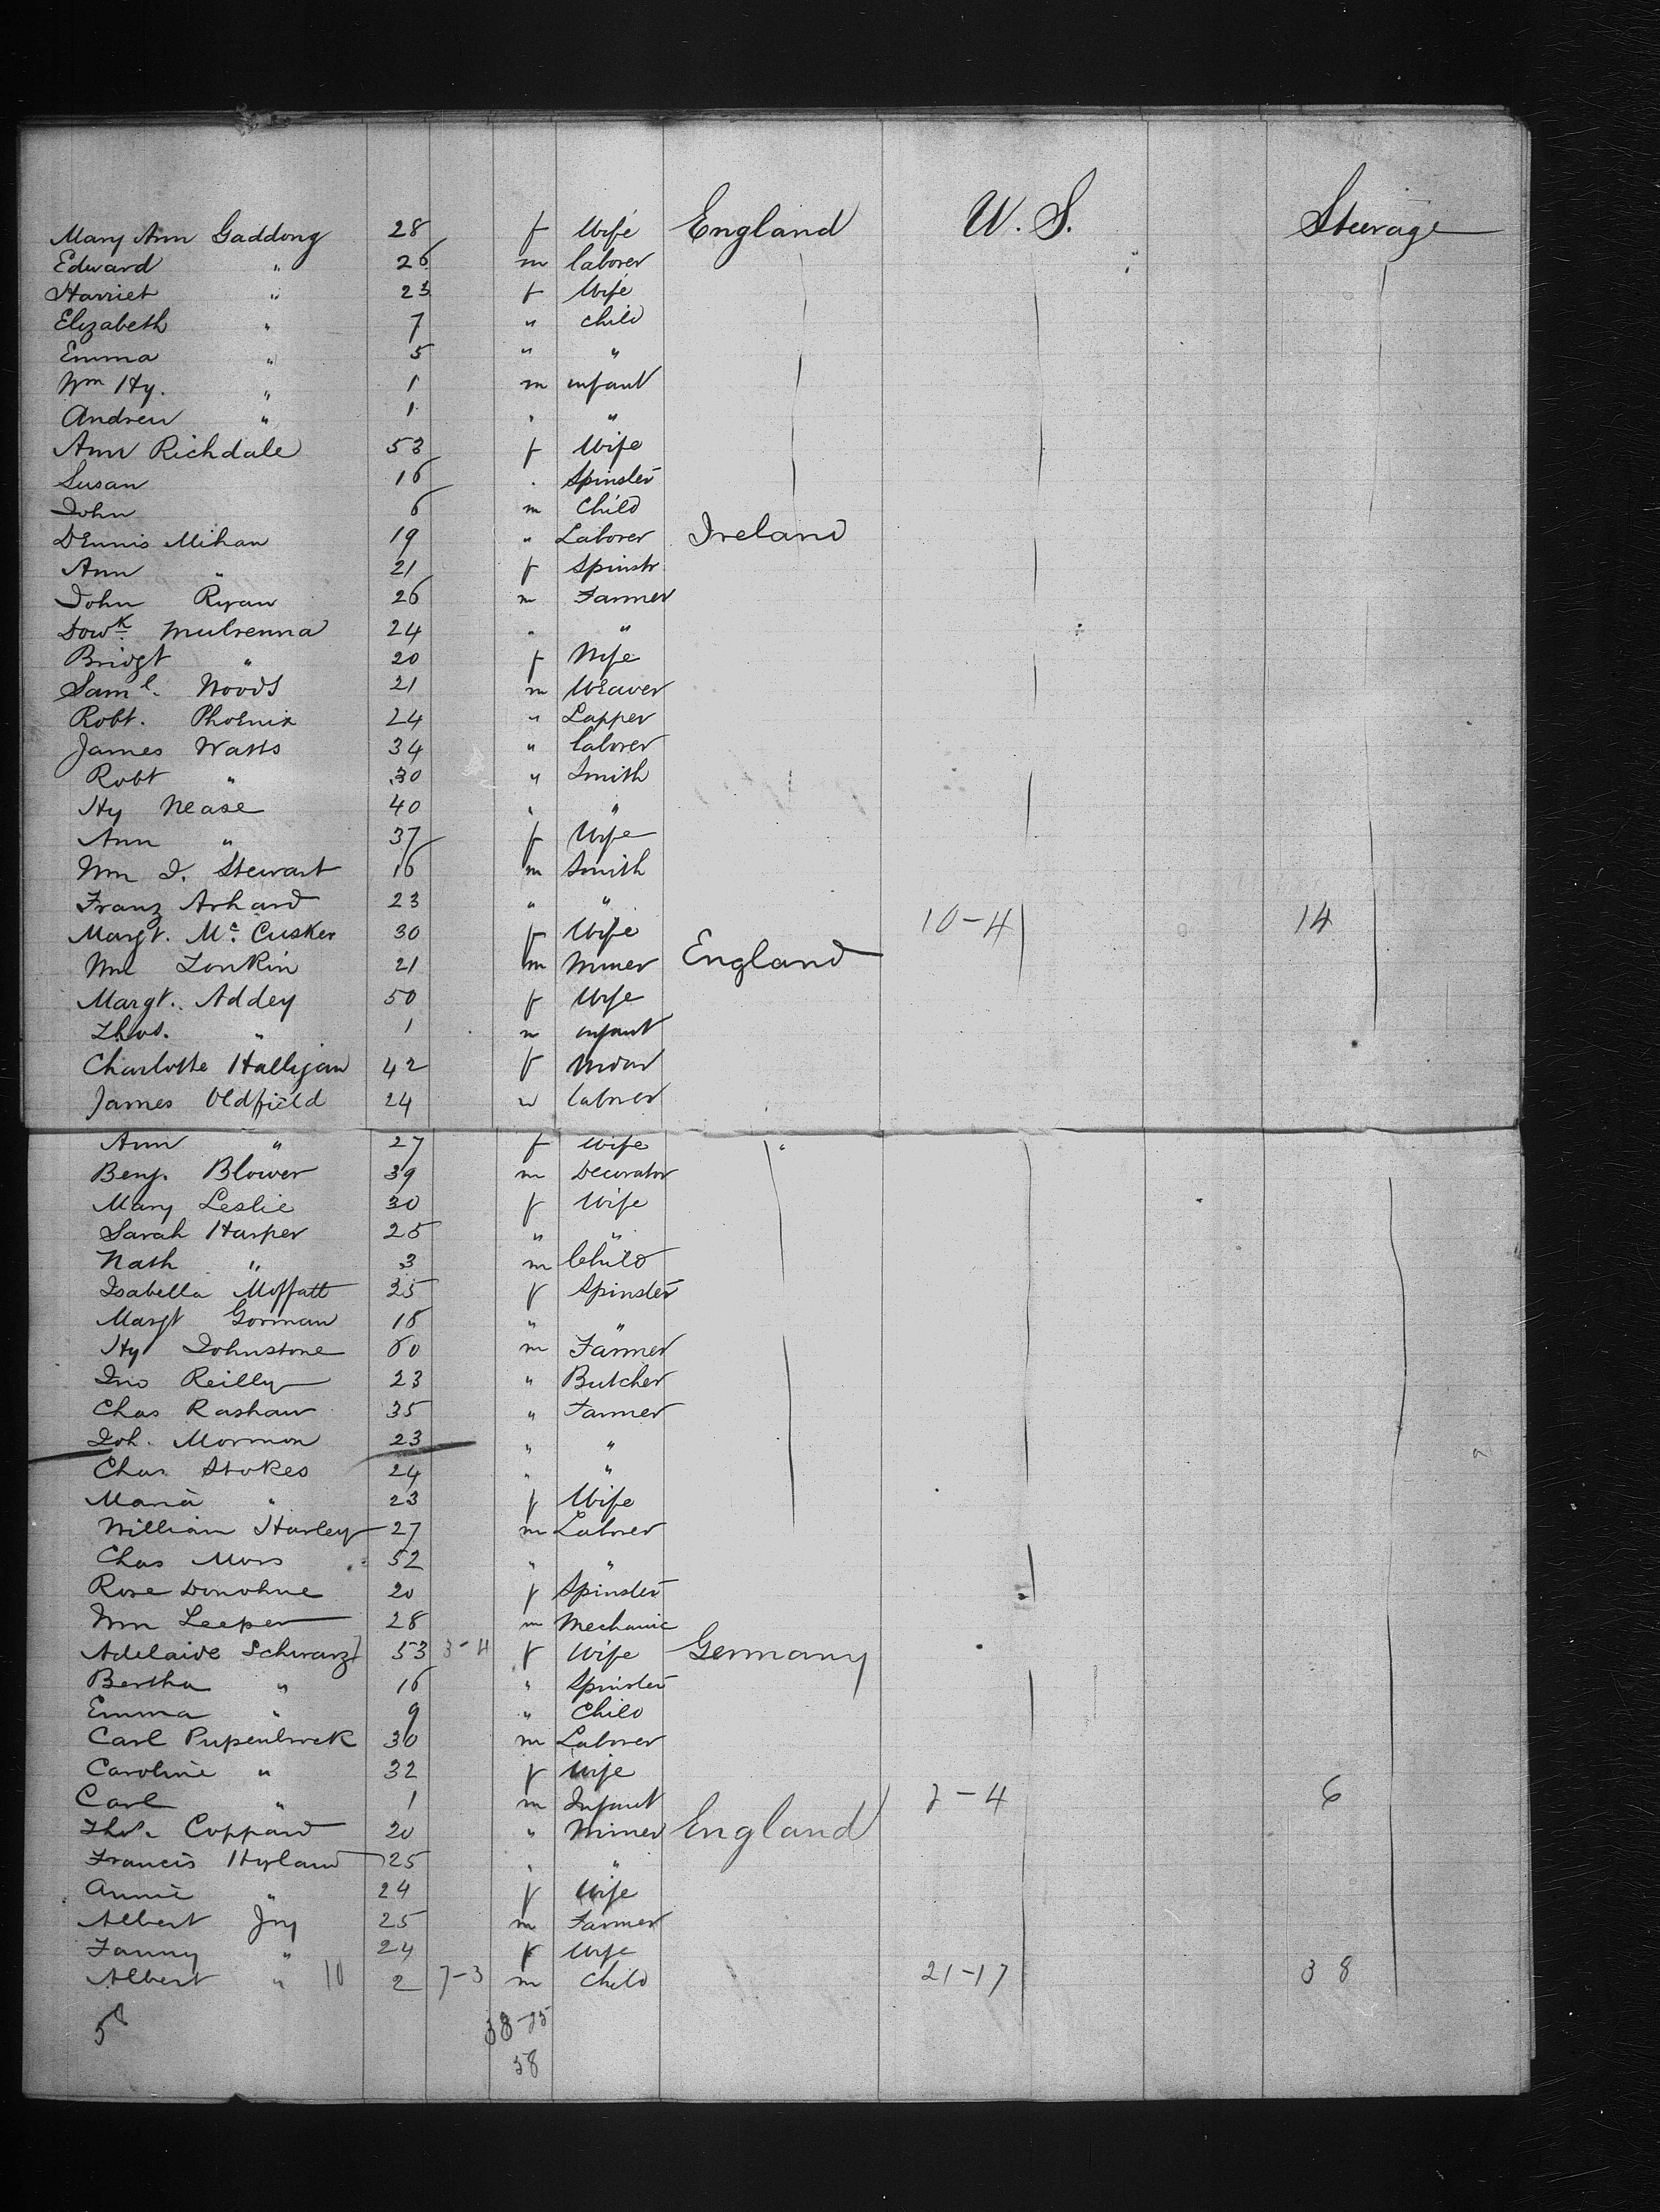 Mary Ann Gaddong 28 f Wife England U. S. Steerage
Edward " 26 m laborer "
Harriet " 23 f Wife
Elizabeth " 7 " child
Emma " 5 " "
Wm Hy. " 1 m infant
Andrew " 1 " "
Ann Richdale 53 f Wife
Susan 16 " Spinster
John 6 m Child
Dennis Mihan 19 " Laborer Ireland
Ann " 21 f Spinstr
John Ryan 26 m Farmer
Dowk. Mulrenna 24 " "
Bridgt " 20 f Wife
Saml. Woods 21 m Weaver
Robt. Phoenix 24 " Lapper
James Watts 34 " laborer
Robt " 30 " Smith
Hy Nease 40 " "
Ann " 37 f Wife
Wm J. Stewart 16 m Smith
Franz Arhard 23 " "
Margt. Mc. Cusker 30 f Wife 10-4 14
Wm Lonkin 21 m Miner England
Margt. Addey 50 f Wife
Thos. " 1 m infant
Charlotte Halligan 42 f
James Oldfield 24 m laborer
Ann " 27 f Wife "
Benj. Blower 39 m Decorator
Mary Leslie 30 f Wife
Sarah Harper 25 " "
Nath " 3 m Child
Isabella Moffatt 35 f Spinster
Margt Gorman 18 " "
Hy Johnstone 60 m Farmer
Jno Reilly 23 " Butcher
Chas Rashaw 35 " Farmer
Joh. Mormon 23 " "
Chas. Stokes 24 " "
Maria " 23 f Wife
William Harley 27 m Laborer
Chas Moss 52 " "
Rose Donohue 20 f Spinster
Wm Leeper 28 m Mechanic
Adelaide Schwarz 53 3-4 f Wife Germany
Bertha " 16 " Spinster
Emma " 9 " Child
Carl 30 m Laborer
Caroline " 32 f Wife
Carl " 1 m Infant 2-4 6
Thos. Coppard 20 " Miner England
Francis Hyland 25 " "
Annie " 24 f Wife
Albert Joy 25 m Farmer
Fanny " 24 f Wife
Albert " 10 2 7-3 m Child 21-17 38
58
58